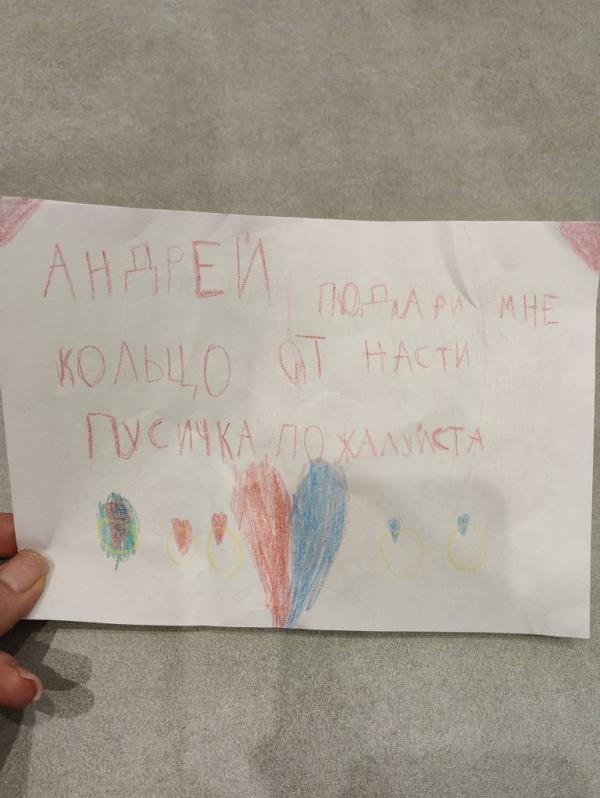 АНДРЕЙ ПОДАРИ МНЕ
КОЛЬЦО ОТ НАСТИ
ПУСИЧКА ПОЖАЛУЙСТА